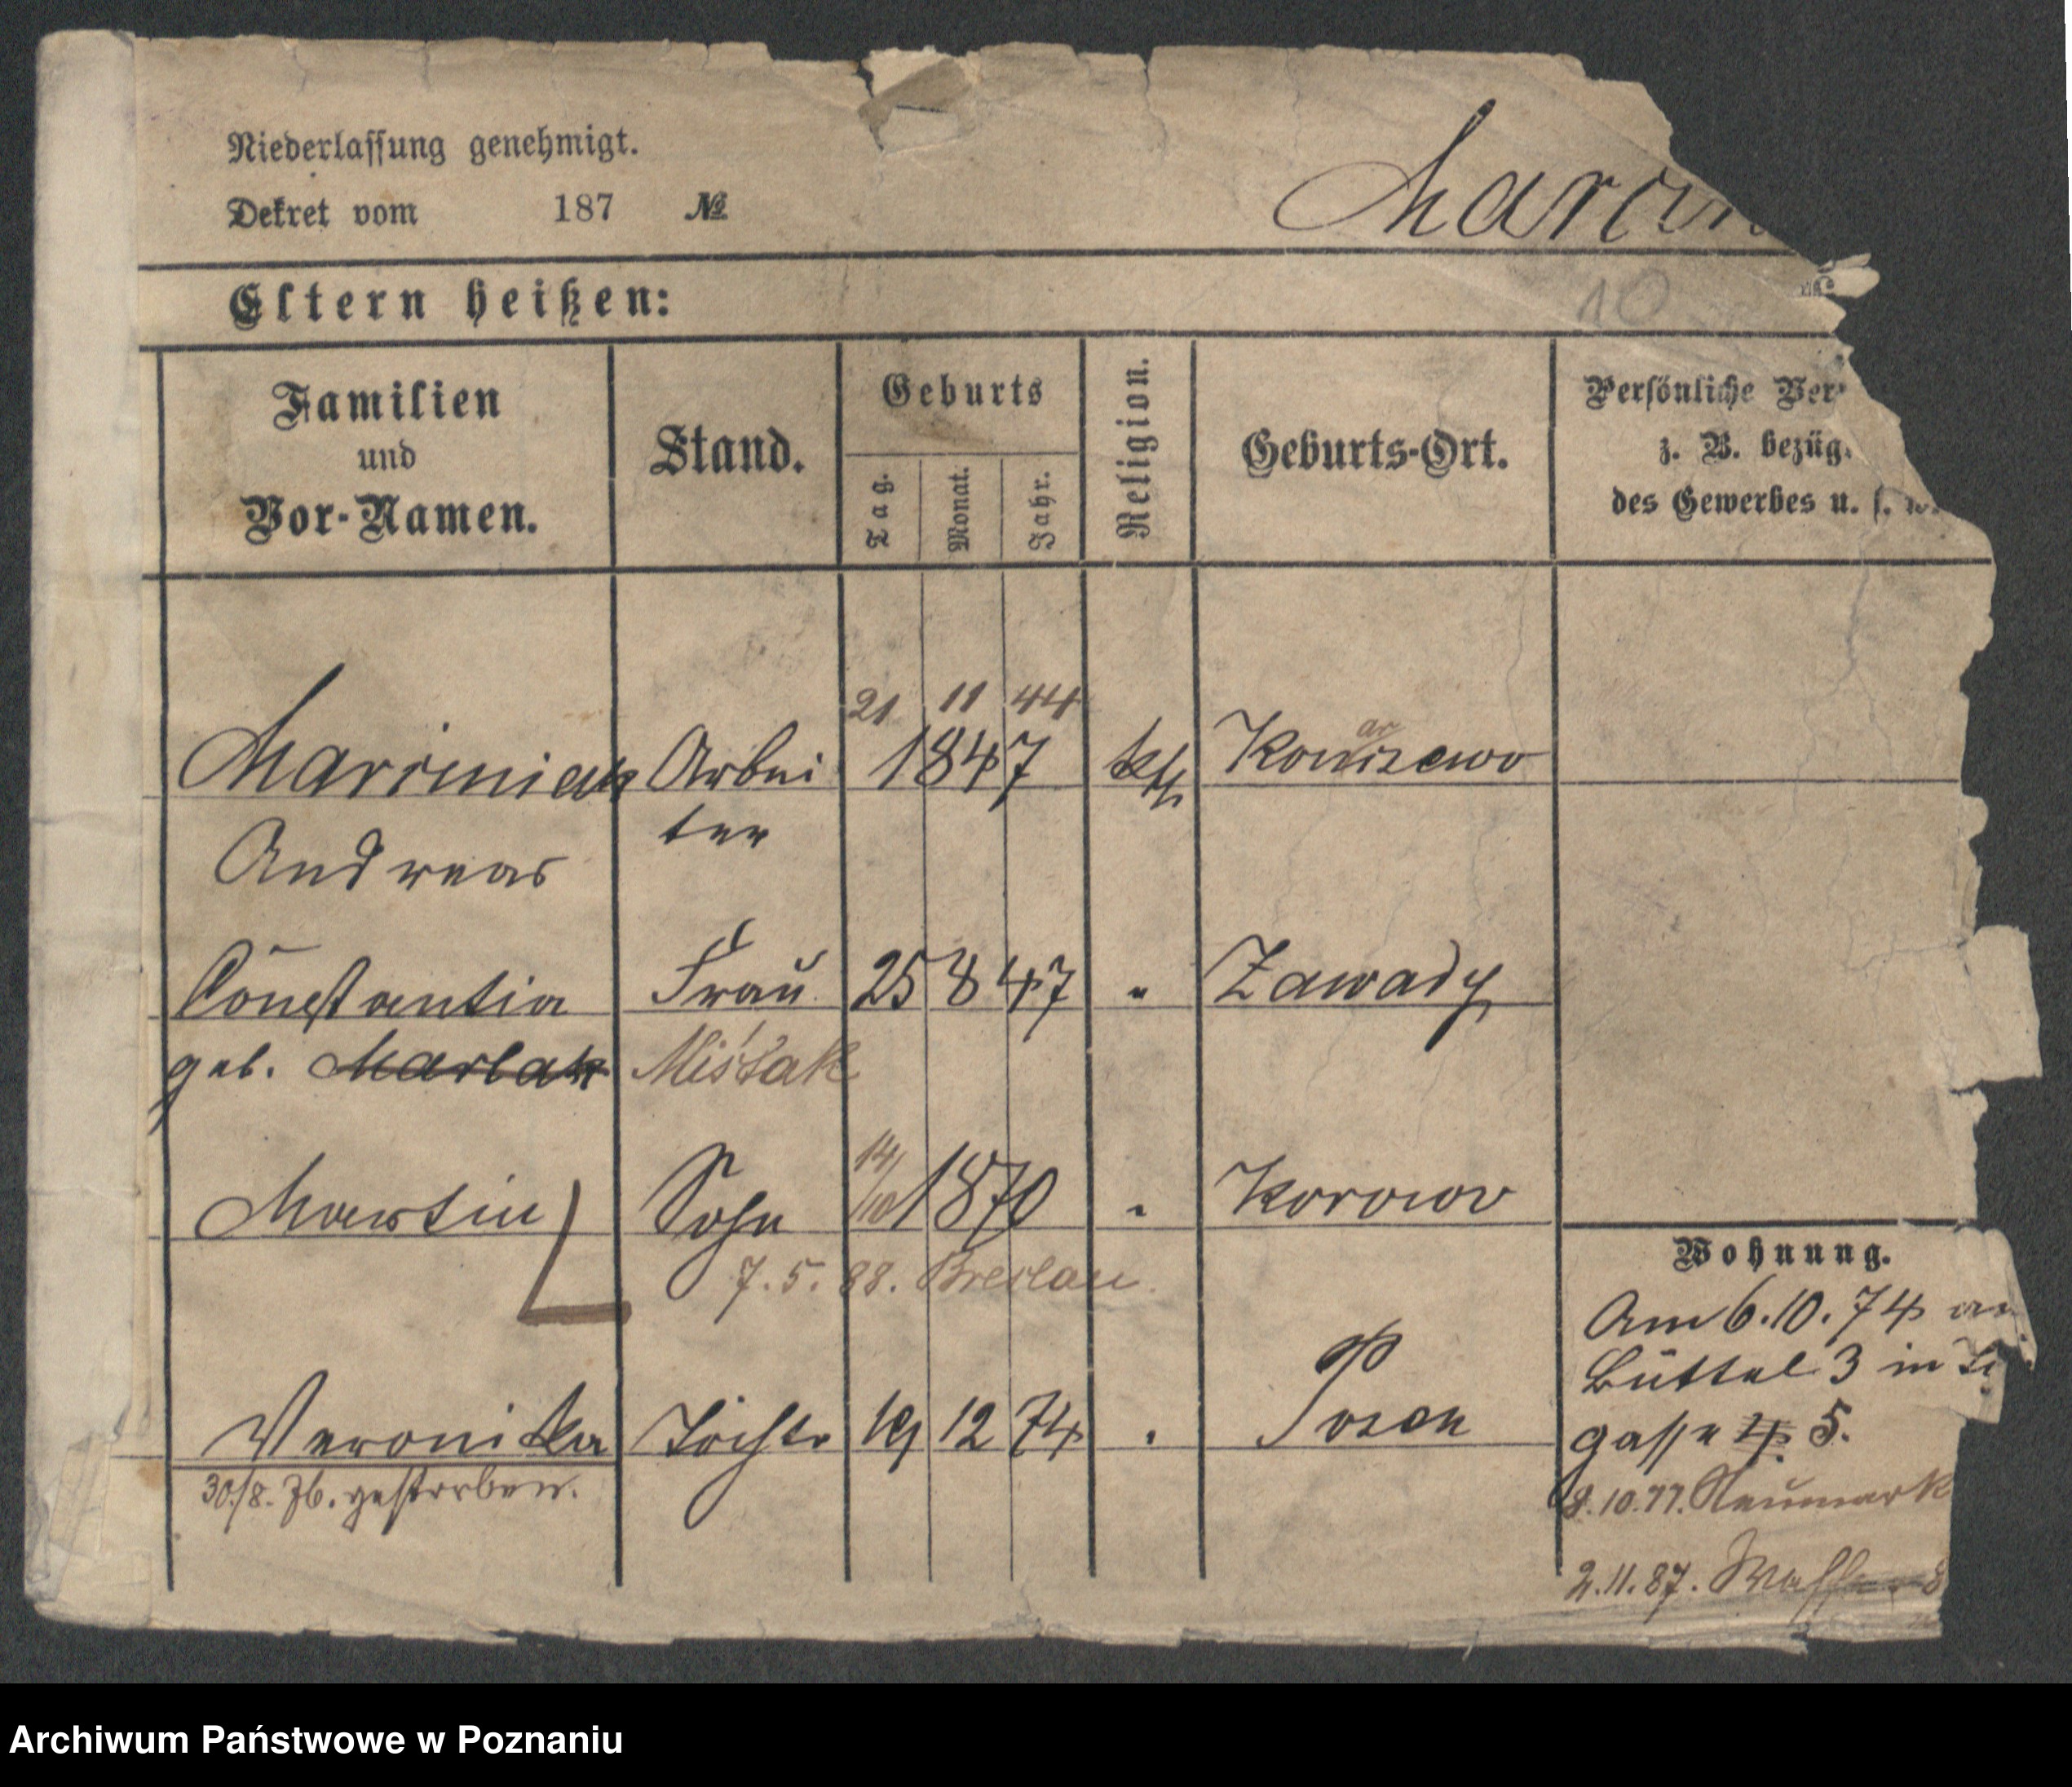 Niederlassung genehmigt.
Dekret vom 187 №
Marcin
10
Eltern heißen:
Familien und Vor-Namen.
Stand.
Geburts
Tag. Monat. Jahr.
Religion.
Geburts-Ort.
Persönliche Ver
z. B. bezüg.
des Gewerbes u. s. w.
21 11 44
Marciniak Arbei 1847 kth
ter
Andreas
Constantia Frau 25 8 47 " Zawady
geb. Marlak Miśtak
14/10
Martin Sohn 1870 "
7.5.88. Breslau
Veronika Tochtr 19 12 74 " Posen
30./8. 76. gestorben.
Wohnung.
Am 6.10.74 an
Büttel 3 in
gasse 4 5.
8.10.77. Neumark
2.11.87.
Archiwum Państwowe w Poznaniu